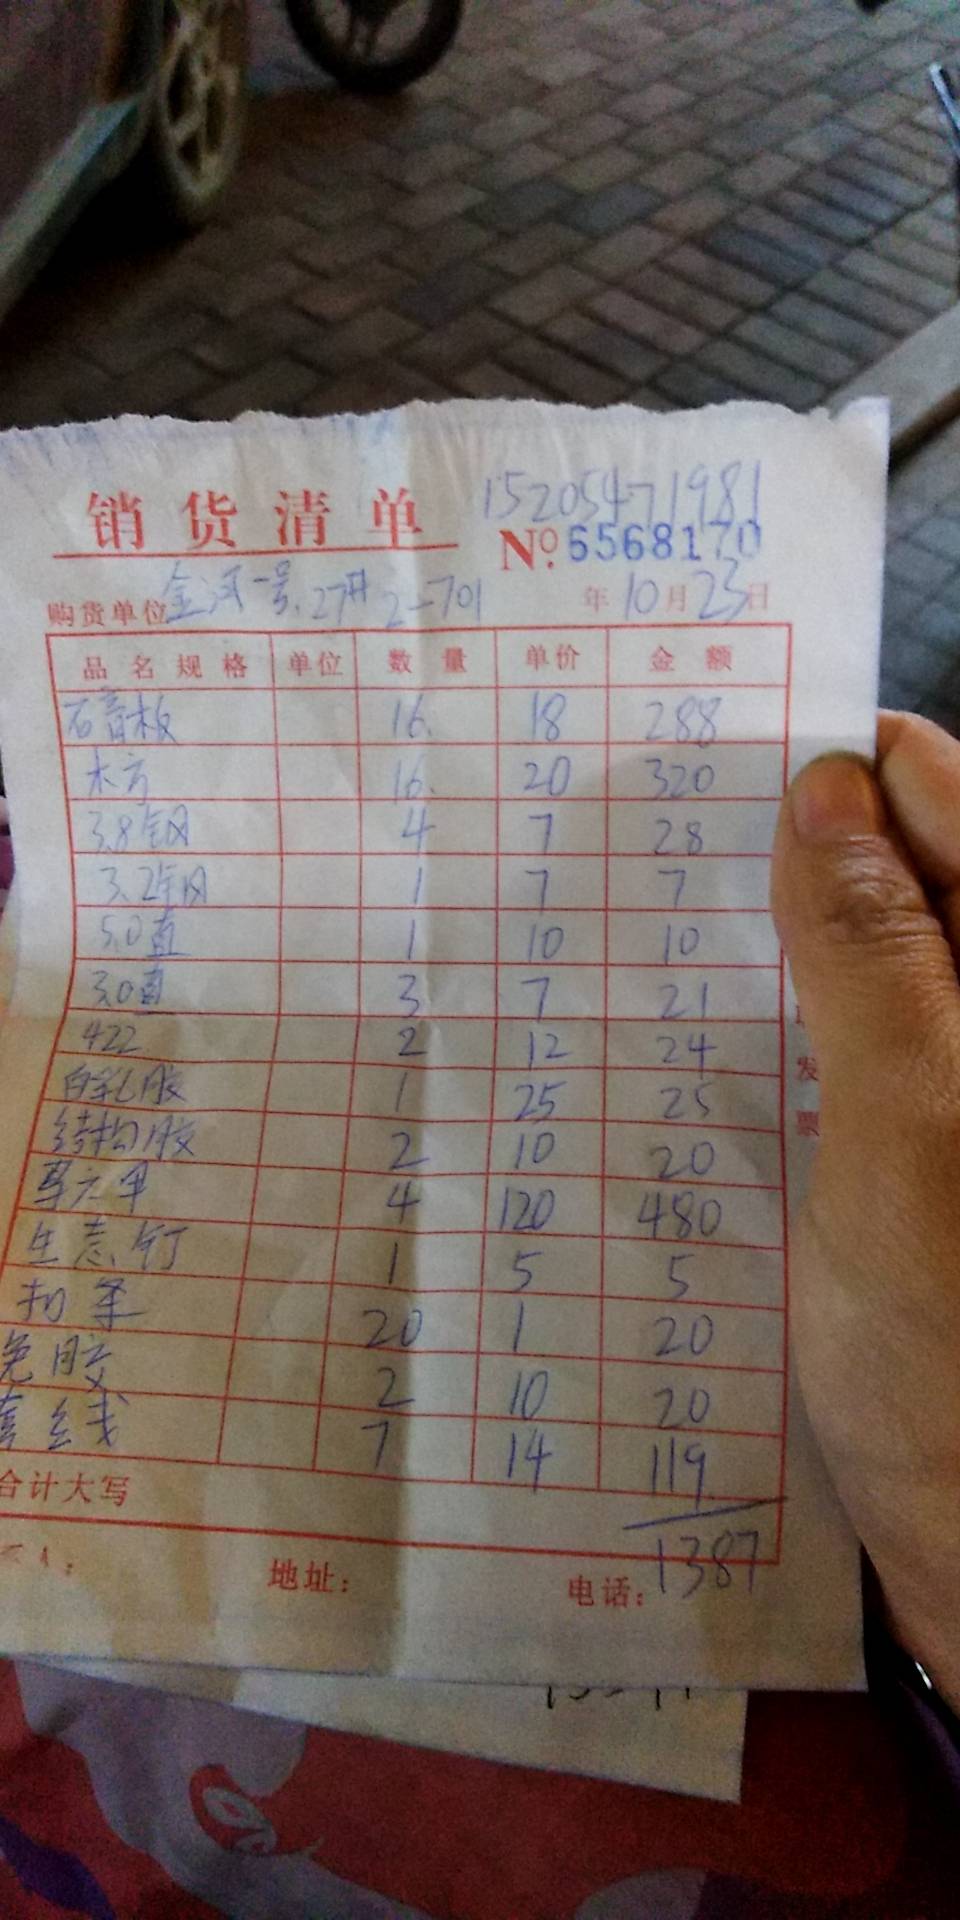 15205471981
销货清单
No. 6568170
购货单位 金河一号.27# 2-701 年10月23日
品名规格 单位 数量 单价 金额
石膏板 16. 18 288
木方 16. 20 320
3.8钢 4 7 28
3.2钢 1 7 7
5.0直 1 10 10
3.0直 3 7 21
422 2 12 24
白乳胶 1 25 25
结构胶 2 10 20
4 120 480
生态钉 1 5 5
扣条 20 1 20
免胶 2 10 20
套线 7 14 119
合计大写
1387
人： 地址： 电话：
发
票